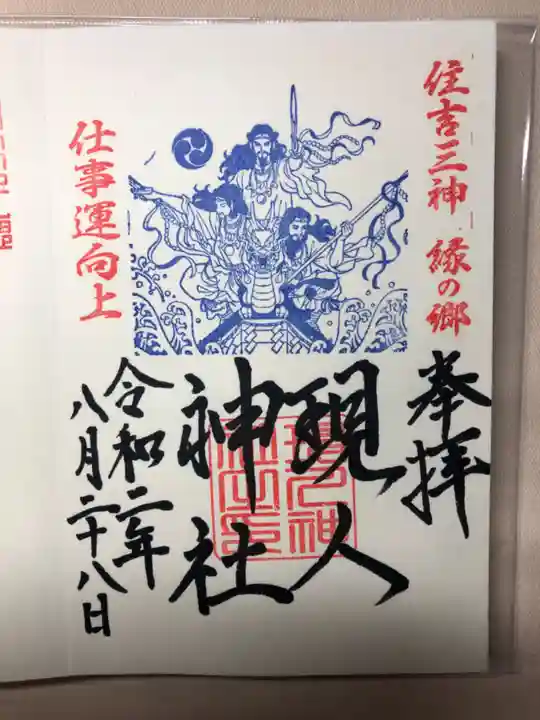 住吉三神 縁の郷
奉拝
現人
神社
仕事運向上
令和二年
八月二十八日